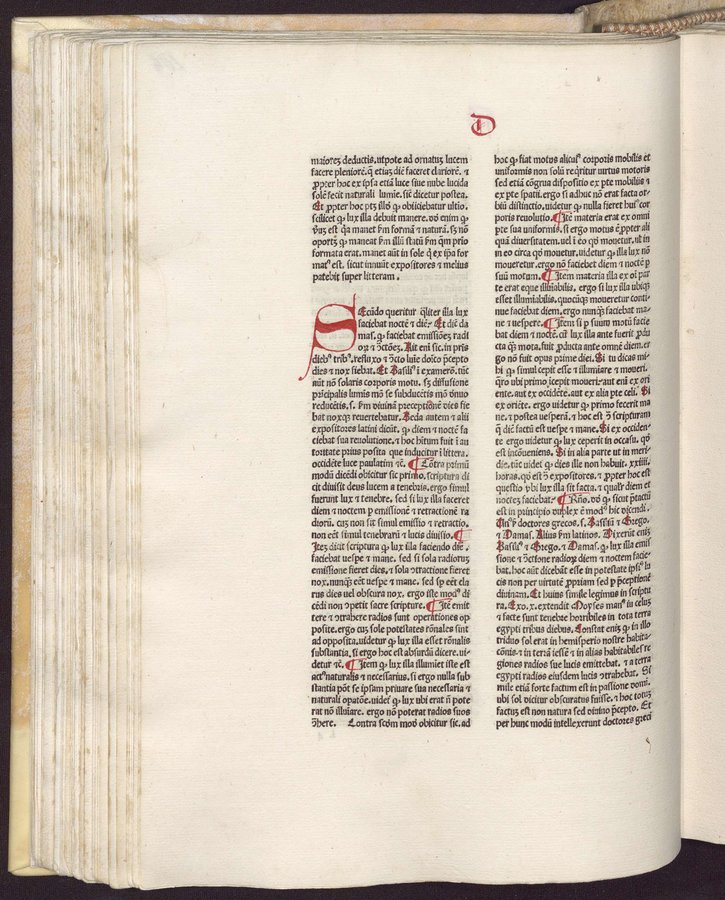 D
maiorez deductis. utpote ad ornatuʒ lucem
facere pleniorē. q̄ etiaʒ diē faceret clariorē. ⁊
ꝓpter hoc ex ipsa etiā luce siue nube lucida
solē fecit naturali lumīe. sic̄ dicetur postea.
Et ꝓpter hoc ptʒ illđ qꝫ obiiciebatur vltio.
scilicet qꝫ lux illa debuit manere. vō enim qꝫ
oportʒ qꝫ maneat ẜm illū statū ẜm quē prio
formata erat. manet aūt in sole q̄ ex ip̄a for
mat⁹ est. sicut innuūt expositores ⁊ melius
patebit super litteram.
Secūdo queritur q̄liter illa lux
faciebat noctē ⁊ diē. Et dic̄ da
mas. qꝫ faciebat emissiōeʒ radi
oꝝ ⁊ ↄ̄ctōeʒ. Ait eni sic. in pris
dieb⁹ trib⁹. refuso ⁊ ↄ̄cto lūie đoico p̄cepto
dies ⁊ nox fiebat. Et Basili⁹ ī exameꝝ. tūc
aūt nō solaris corporis motu. sʒ diffusione
prīcipalis lumīs mō se subducētis mō vīuo
reducētis. s. ẜm diuinā preceptionē dies fie
bat noxqꝫ reuertebatur. Beda autem ⁊ alii
expositores latini dicūt. qꝫ diem ⁊ noctē fa
ciebat sua reuolutione. ⁊ hoc h̄itum fuit ī au
toritate prius posita que inducitur ī littera.
occidēte luce paulatim ⁊c̄. ¶ Cōtra primū
modū dicēdi obicitur sic primo. scriptura di
cit diuisit deus lucem a tenebris. ergo simul
fuerunt lux ⁊ tenebre. sed si lux illa faceret
diem ⁊ noctem ꝑ emissionē ⁊ retractionē ra
dioꝝ. cuʒ non sit simul emissio ⁊ retractio.
non eēt simul tenebraꝝ ⁊ lucis diuisio. ¶
Iteʒ dicit scriptura qꝫ lux illa faciendo diē.
faciebat vespe ⁊ mane. sed si sola radioruʒ
emissione fieret dies. ⁊ sola ↄtractione fieret
nox. nunqꝫ eēt vespe ⁊ mane. sed sp eēt cla
rus dies vel obscura nox. ergo iste mod⁹ di
cēdi non ↄpetit sacre scripture. ¶ Itē emit
tere ⁊ ↄtrahere radios sunt operationes op
posite. ergo cuʒ sole potestates rōnales sint
ad opposita. uidetur qꝫ lux illa esset rōnalis
substantia. si ergo hoc est absurdū dicere. vi
detur ⁊c̄. ¶ Item qꝫ lux illa illumiet iste est
act⁹ naturalis ⁊ necessarius. si ergo nulla sub
stantia pōt se ipsam priuare sua necessaria ⁊
naturali opatōe. uidet̄ qꝫ lux ubi erat n̄ pote
rat nō illuīare. ergo nō poterat radios suos
ↄ̄here. Contra scđm mođ obicitur sic. ad
hoc qꝫ fiat motus alicui⁹ corporis mobilis et
uniformis non solū reqritur virtus motoris
sed etiā cōgrua dispositio ex pte mobilis ⁊
ex pte spatii. ergo si adhuc nō erat facta or
biū distinctio. uidetur qꝫ nulla fieret hui⁹ cor
poris reuolutio. ¶ Itē materia erat ex omni
pte sua uniformis. si ergo motus ē ꝓpter ali
quā diuersitatem. uel ī eo qđ mouetur. ut in
in eo circa qđ mouetur. uidetur qꝫ illa lux nō
moueretur. ergo nō faciebat diem ⁊ noctē ꝑ
suū motum. ¶ Item materia illa ex oī par
te erat eque illuīabilis. ergo si lux illa ubiqꝫ
esset illumiabilis. quocūqꝫ moueretur conti
nue faciebat diem. ergo nunqꝫ faciebat ma
ne ⁊ vespere. ¶ Item si ꝑ suum motū facie
bat diem ⁊ noctē. cū lux illa ante fuerit ꝓdu
cta qꝫ mota. fuit ꝓducta ante omnē diem. er
go nō fuit opus prime diei. Si tu dicas mi-
bi qꝫ simul cepit esse ⁊ illumiare ⁊ moueri.
qro ubi primo icepit moueri. aut eni ex ori
ente. aut ex occidēte. aut ex alia pte celi. Si
ex oriēte. ergo uidetur qꝫ primo fecerit ma
ne. ⁊ postea vesperā. ⁊ hoc est ↄ̄ scripturam
q̄ dic̄ factū est vespe ⁊ mane. Si ex occiden-
te ergo uidetur qꝫ lux ceperit in occasu. qđ
est incōueniens. Si in alia parte ut in meri-
die. tūc videt̄ qꝫ dies ille non habuit. xxiiii.
horas. qđ est ↄ̄ expositores. ⁊ ꝓpter hoc est
questio ybi lux illa sit facta. ⁊ qualr̄ diem et
noctez faciebat. ¶ Rn̄o. vđ qꝫ sicut p̄tactū
est in principio duplex ē mod⁹ hic dicendi.
Un⁹ ẜm doctores grecos. s. Basiliū ⁊ Grego.
⁊ Damas. Alius ẜm latinos. Dixerūt eniʒ
Basili⁹ ⁊ Grego. ⁊ Damas. qꝫ lux illa emis
sione ⁊ ↄ̄ctione radioꝝ diem ⁊ noctem facie-
bat. hoc aūt dicebāt esse in potestate ipsi⁹ lu
cis non per virtutē ꝓpriam sed ꝑ p̄ceptionē
diuinam. Et huius simile legimus in scriptu
ra. Exo. x. extendit Moyses man⁹ in celuʒ
⁊ facte sunt tenebre horribiles in tota terra
egypti tribus diebus. Constat eniʒ qꝫ in illo
triduo sol erat in hemisperio nostre habita-
cōnis. ⁊ in terrā iesse ⁊ in alias habitabiles re
giones radios sue lucis emittebat. ⁊ a terra
egypti radios eiusdem lucis ↄtrahebat. Si
mile etiā forte factum est in passione domī.
ubi sol vicitur obscuratus fuisse. ⁊ hoc totuʒ
factuʒ est non natura sed diuino p̄cepto. Et
per hunc modū intellexerunt doctores greci